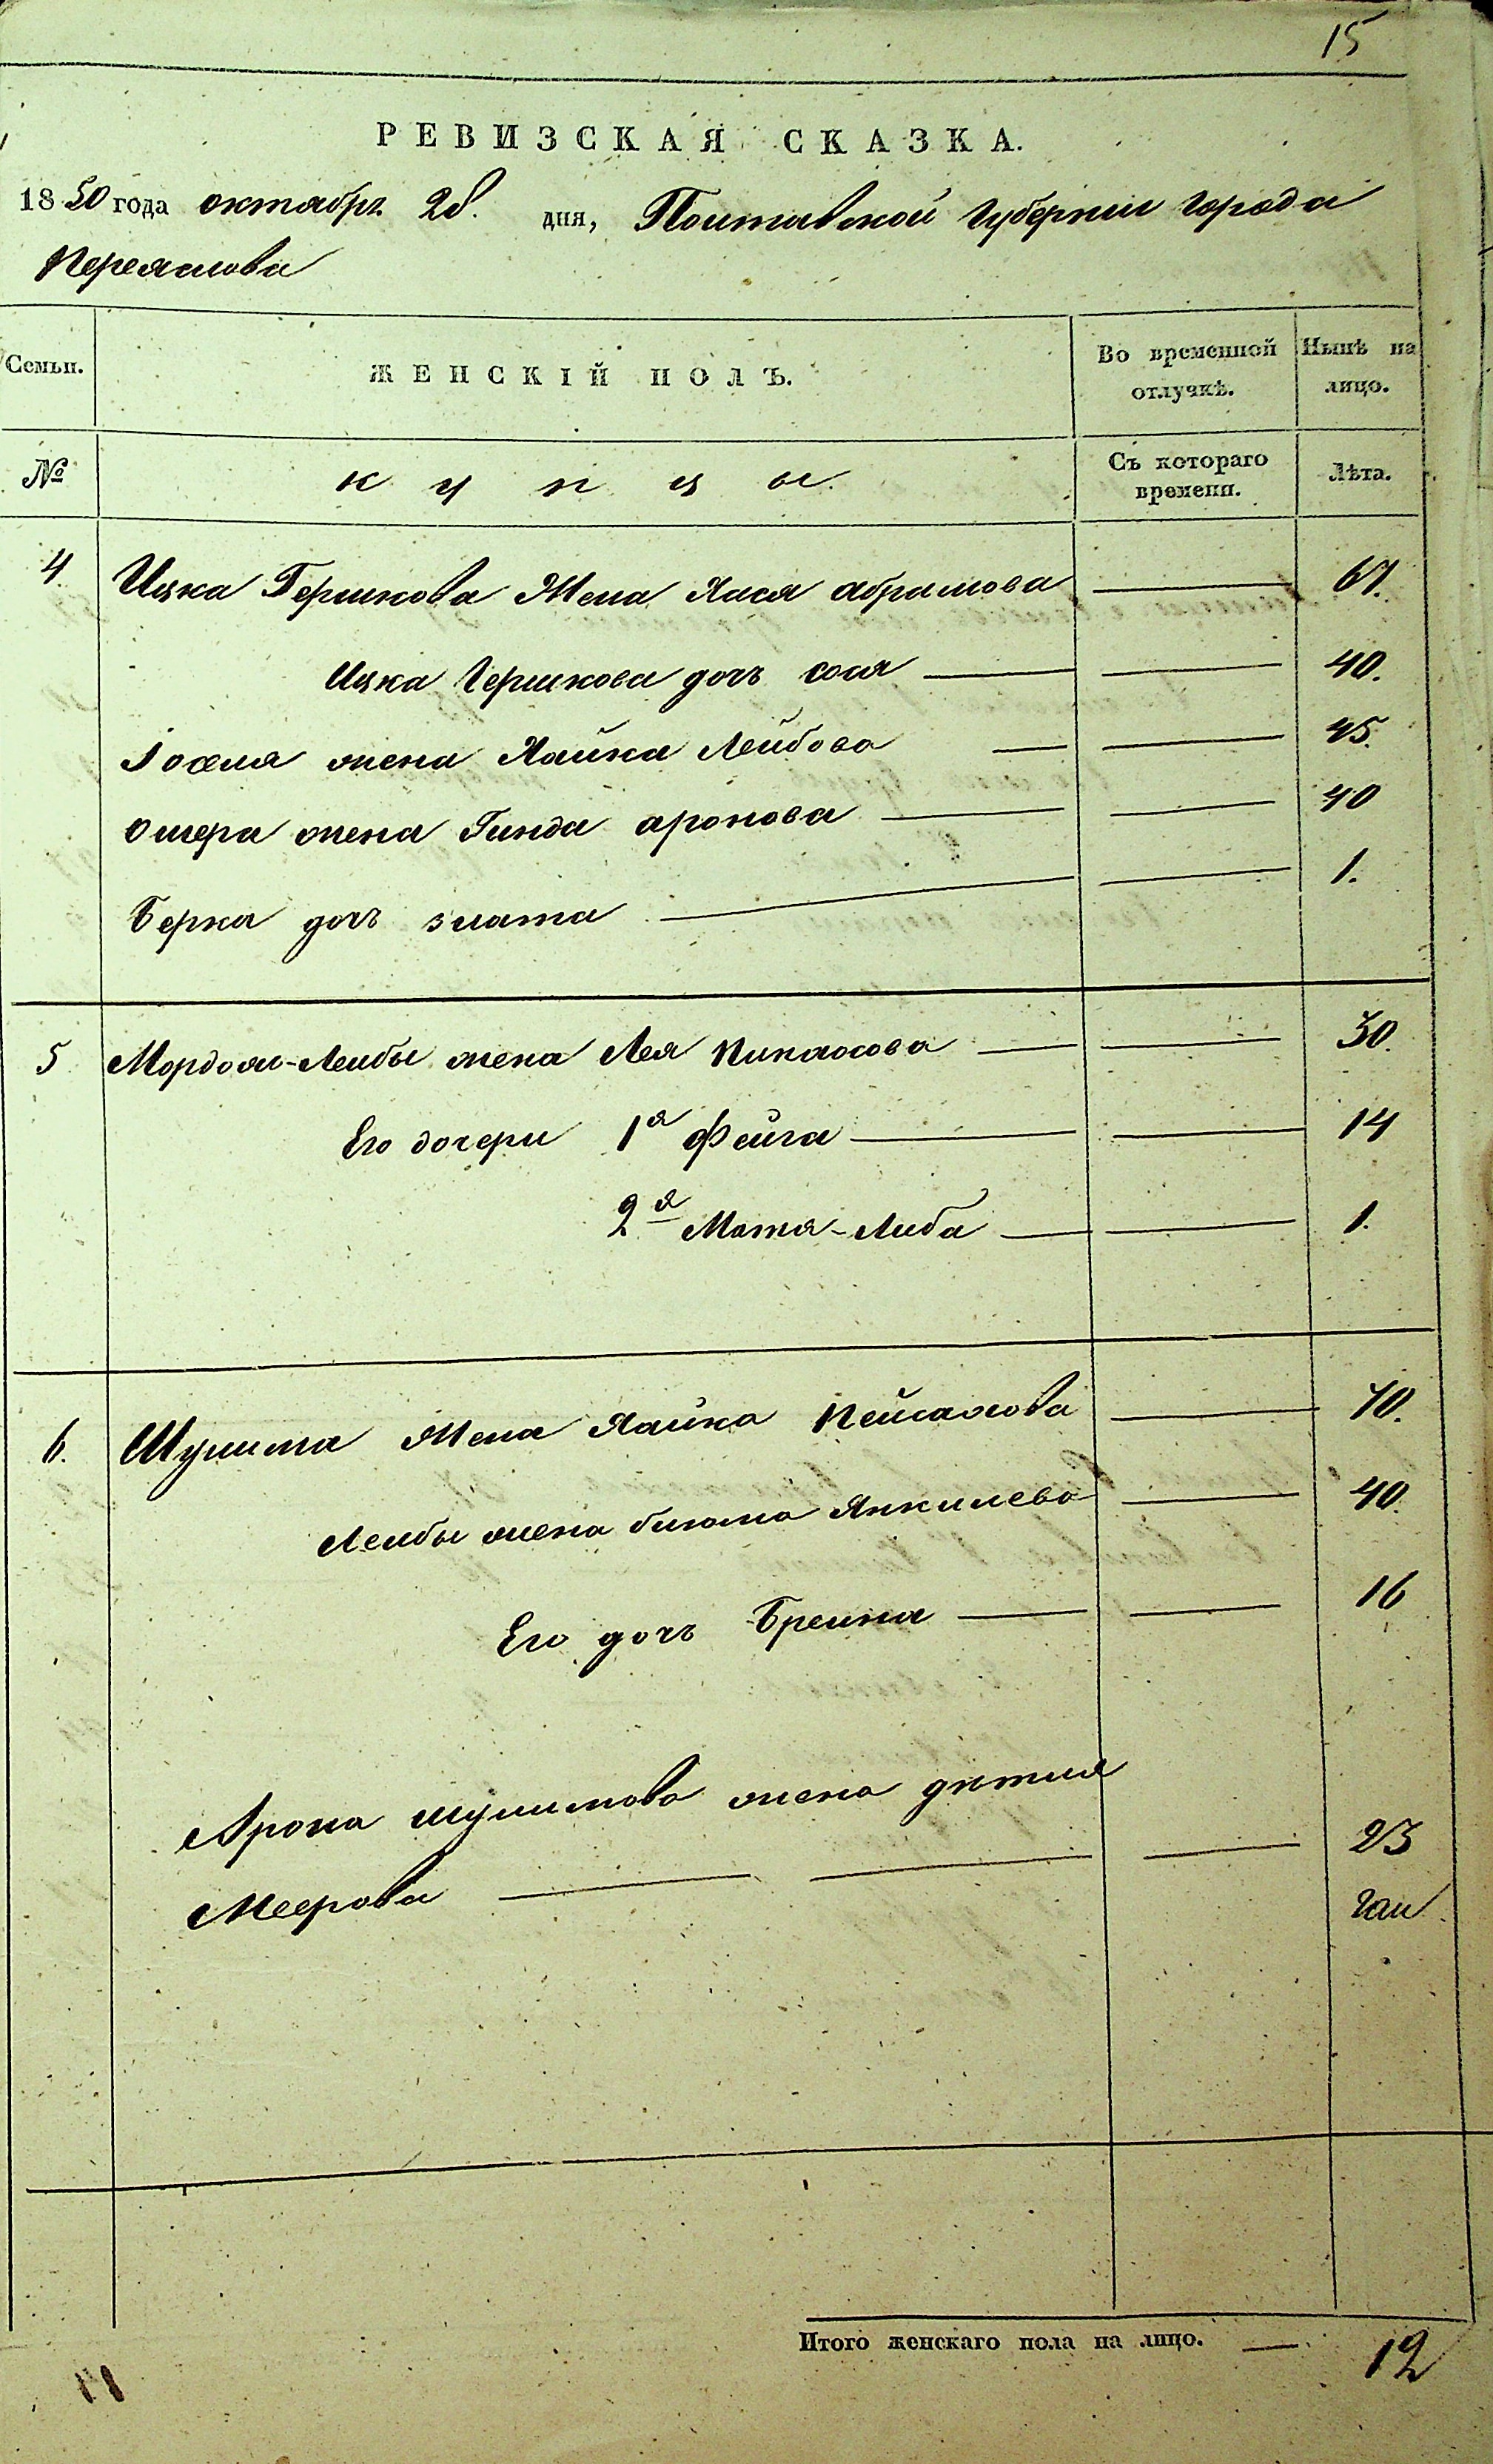 15
РЕВИЗСКАЯ СКАЗКА.
1850 года октябрѧ 28. дня, Полтавской Губернии города
Переяслова
Семьи. ЖЕНСКІЙ ПОЛЪ. Во временной отлучкѣ. Нынѣ на лицо.
№ купцы. Съ котораго времени. Лѣта.
4 Ицка Гершкова Жена Хася абрамова 67.
Ицка Гершкова дочь сося 40.
Іоселя жена Хайка Лейбова 45.
Ошера жена Гинда аронова 40
Берка дочь злата 1.
5 Мордом-Лейбы жена Лея Пинхасова 30.
Его дочери 1я Фейга 14
2я Матя-Либа 1.
6. Шулима Жена Хайка Пейсахова 70.
Лейбы жена блюма Янкилева 40.
Его дочь Брейна 16
Арона шулимова жена
Меерова 23
Итого женскаго пола на лицо. 12